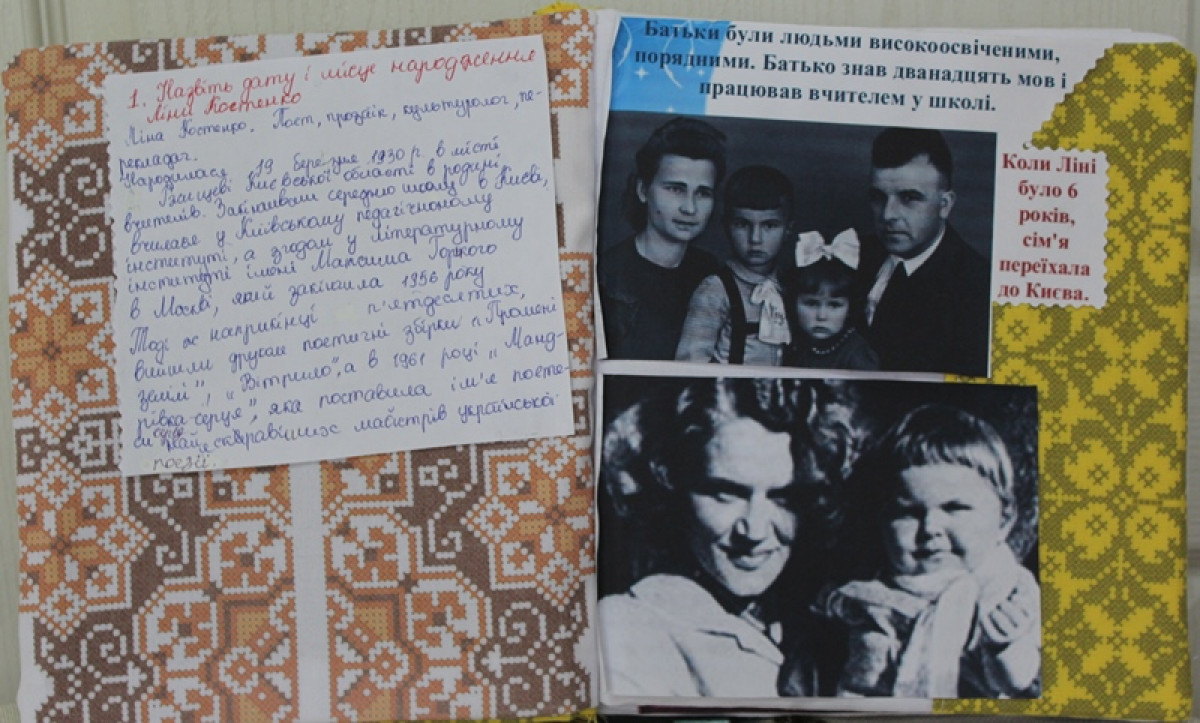 1. Назвіть дату і місце народження
Ліни Костенко
Ліна Костенко. Поет, прозаїк, культуролог, пе-
рекладач.
Народилася 19 березня 1930 р. в місті
Ржищеві Київської області в родині
вчителів. Закінчивши середню школу в Києві,
вчилася у Київському педагогічному
інституті, а згодом у Літературному
інституті імені Максима Горького
в Москві, який закінчила 1956 року
Тоді ж наприкінці п'ятдесятих,
вийшли друком поетичні збірки "Проміні
землі", "Вітрила", а в 1961 році "Манд-
рівка серця", яка поставила ім'я поете-
си серед найяскравіших майстрів української
поезії.
Батьки були людьми високоосвіченими,
порядними. Батько знав дванадцять мов і
працював вчителем у школі.
Коли Ліні
було 6
років,
сім'я
переїхала
до Києва.